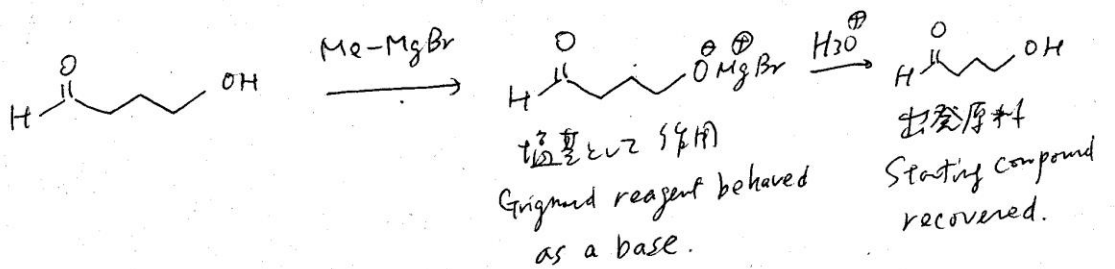 Me-MgBr
H3O⊕
O
H
OH
O
H
⊖ ⊕
OMgBr
O
H
OH
塩基として 作用
Grignard reagent behaved
as a base.
出発原料
Starting compound
recovered.